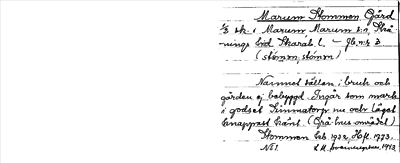 Marum Stommen, Gård
1/2 sk. i Marum Marum sn, Skå-
nings hd Skarab. l. — Jb. nr 2
(stómən, stòmən)
Namnet sällan i bruk och
gården ej bebyggd. Ingår som mark
i godset Simmatorp nu och läget
knappast känt. (Grå hus området)
Stommen Eb 1932, Hfl. 1973.
No 1. 1973